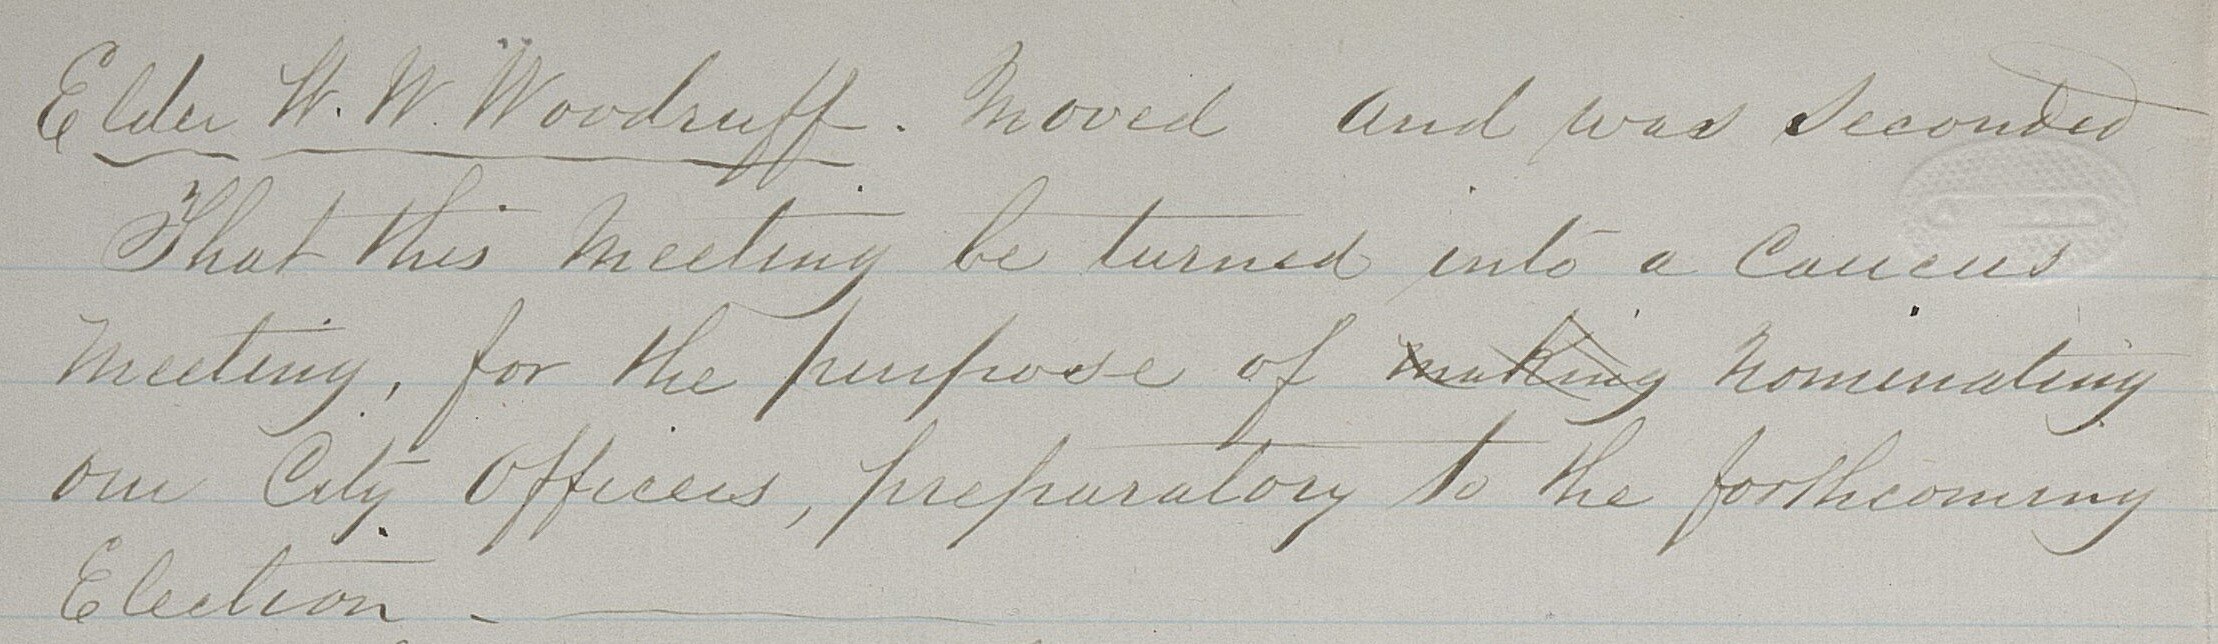 Elder W. W. Woodruff. Moved and was Seconded
That this Meeting be turned into a Caucus
Meeting, for the purpose of making Nominating
our City Officers, preparatory to the forthcoming
Election -